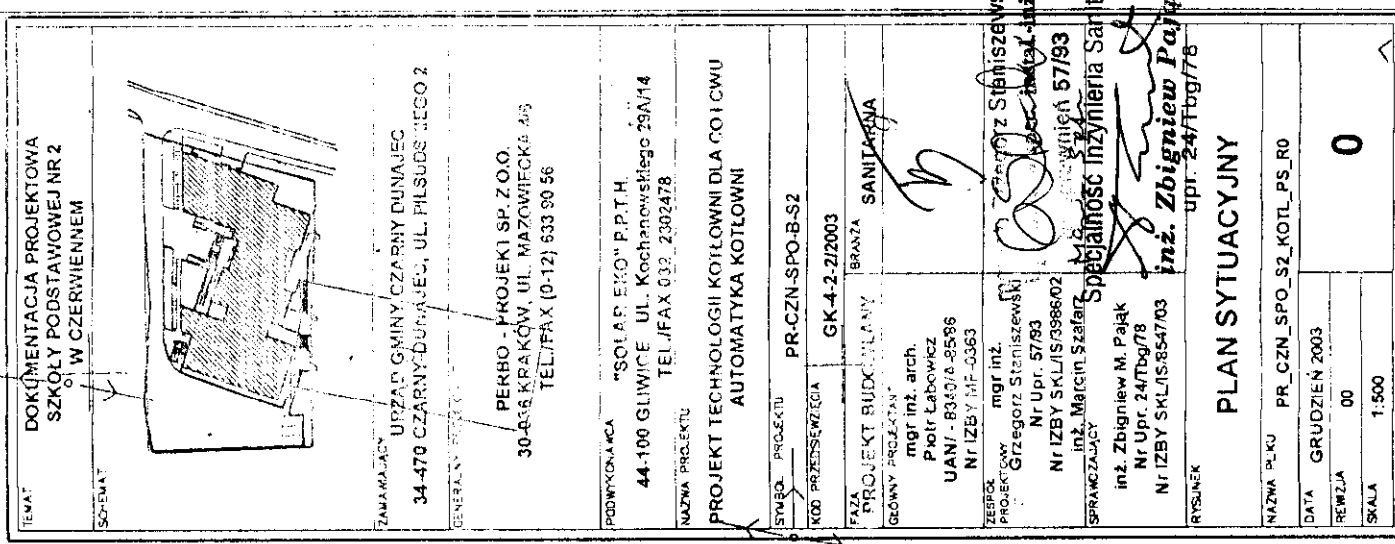 TEMAT
DOKUMENTACJA PROJEKTOWA
SZKOŁY PODSTAWOWEJ NR 2
W CZERWIENNEM
SCHEMAT
ZAMAWIAJĄCY
URZĄD GMINY CZARNY DUNAJEC
34-470 CZARNY DUNAJEC, UL. PIŁSUDSKIEGO 2
GENERALNY
PERBO - PROJEKT SP. Z O.O.
30-036 KRAKÓW, UL. MAZOWIECKA
TEL./FAX (0-12) 633 90 56
PODWYKONAWCA
"SOLAR EKO" P.P.T.H.
44-100 GLIWICE UL. Kochanowskiego 29A/14
TEL./FAX 032 2302478
NAZWA PROJEKTU
PROJEKT TECHNOLOGII KOTŁOWNI DLA CO I CWU
AUTOMATYKA KOTŁOWNI
SYMBOL PROJEKTU
PR-CZN-SPO-B-S2
KOD PRZEDSIĘWZIĘCIA
GK-4-2-2/2003
FAZA
PROJEKT BUDOWLANY
BRANŻA
SANITARNA
GŁÓWNY PROJEKTANT
mgr inż. arch.
Piotr Łabowicz
Nr IZBY MP-0363
ZESPÓŁ PROJEKTOWY
mgr inż.
Grzegorz Staniszewski
Nr Upr. 57/93
Nr IZBY SKL/IS/3986/02
inż. Marcin Szafarz
57/93
SPRAWDZAJĄCY
inż. Zbigniew M. Pająk
Nr Upr. 24/Tbg/78
Nr IZBY SKL/IS/8547/03
Specjalność Inżynieria
inż. Zbigniew
upr. 24/Tbg/78
RYSUNEK
PLAN SYTUACYJNY
NAZWA PLIKU
PR_CZN_SPO_S2_KOTL_PS_R0
DATA
GRUDZIEŃ 2003
REWIZJA
00
0
SKALA
1:500